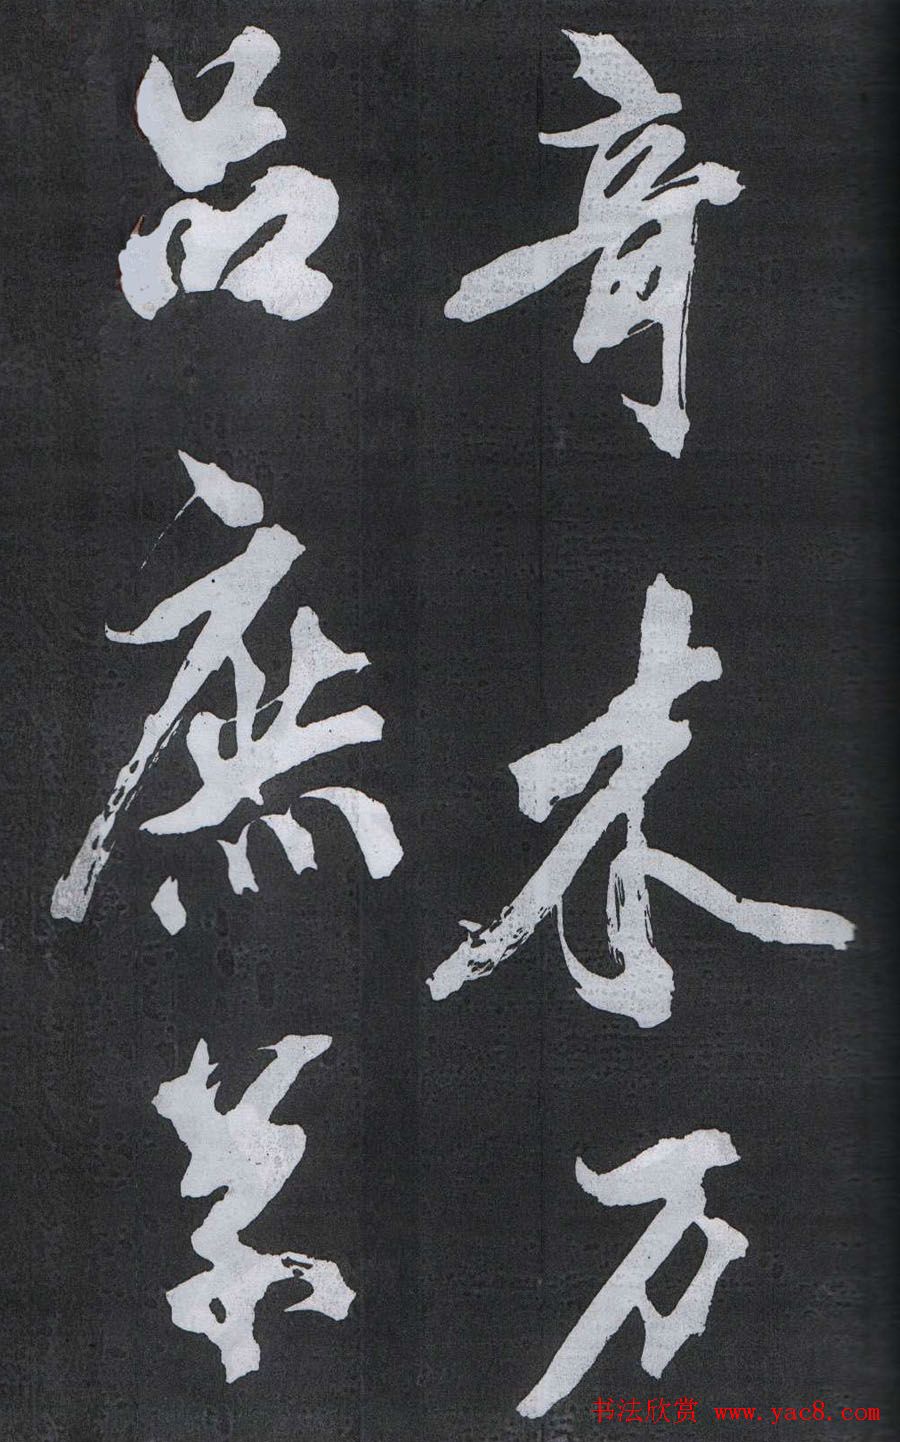 竒木万
品庶
书法欣赏 www.yac8.com